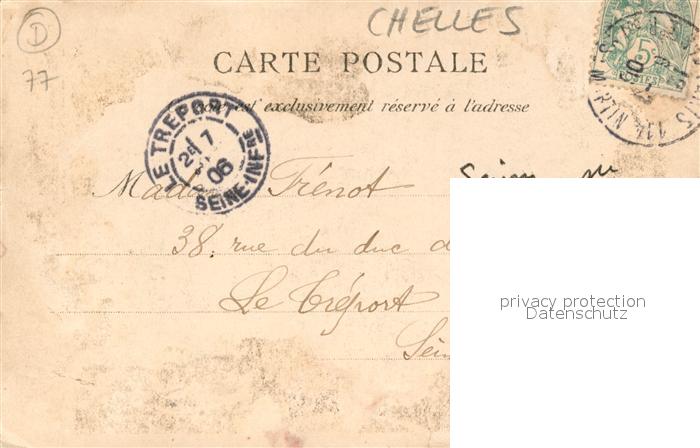 CHELLES
D
77
CARTE POSTALE
est exclusivement réservé à l'adresse
LE TREPORT
24 7
06
SEINE-INFRE
5c
Madame Trénot
38, rue du duc d
Le Tréport
Sein
privacy protection
Datenschutz